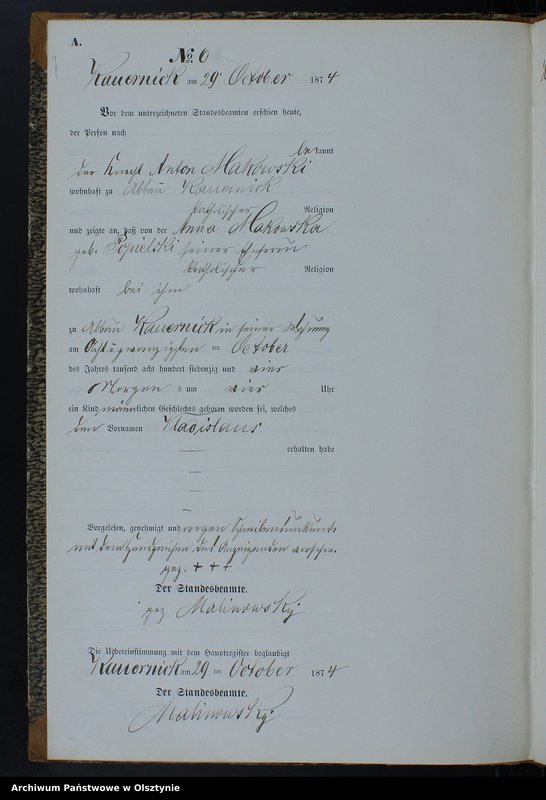 A.
№ 6
Kauernick am 29 October 1874
Vor dem unterzeichneten Standesbeamten erschien heute,
der Person nach
be kannt
der Knecht Anton Makowski
wohnhaft zu Abbau Kauernick
katholischer Religion
und zeigte an, daß von der Anna Makowska
geb. Popielski seiner Ehefrau
katholischer Religion
wohnhaft bei ihm
zu Abbau Kauernick in seiner Wohnung
am Acht u zwanzigsten ten October
des Jahres tausend acht hundert siebenzig und vier
Morgens um vier Uhr
ein Kind männlichen Geschlechts geboren worden sei, welches
den Vornamen Wladislaus
erhalten habe
Vorgelesen, genehmigt und wegen Schreibensunkunde
mit dem Handzeichen des Anzeigenden versehen.
gez. + + +
Der Standesbeamte.
gez Malinowsky
Die Uebereinstimmung mit dem Hauptregister beglaubigt
Kauernick am 29 ten October 1874
Der Standesbeamte.
Malinowsky
Archiwum Państwowe w Olsztynie